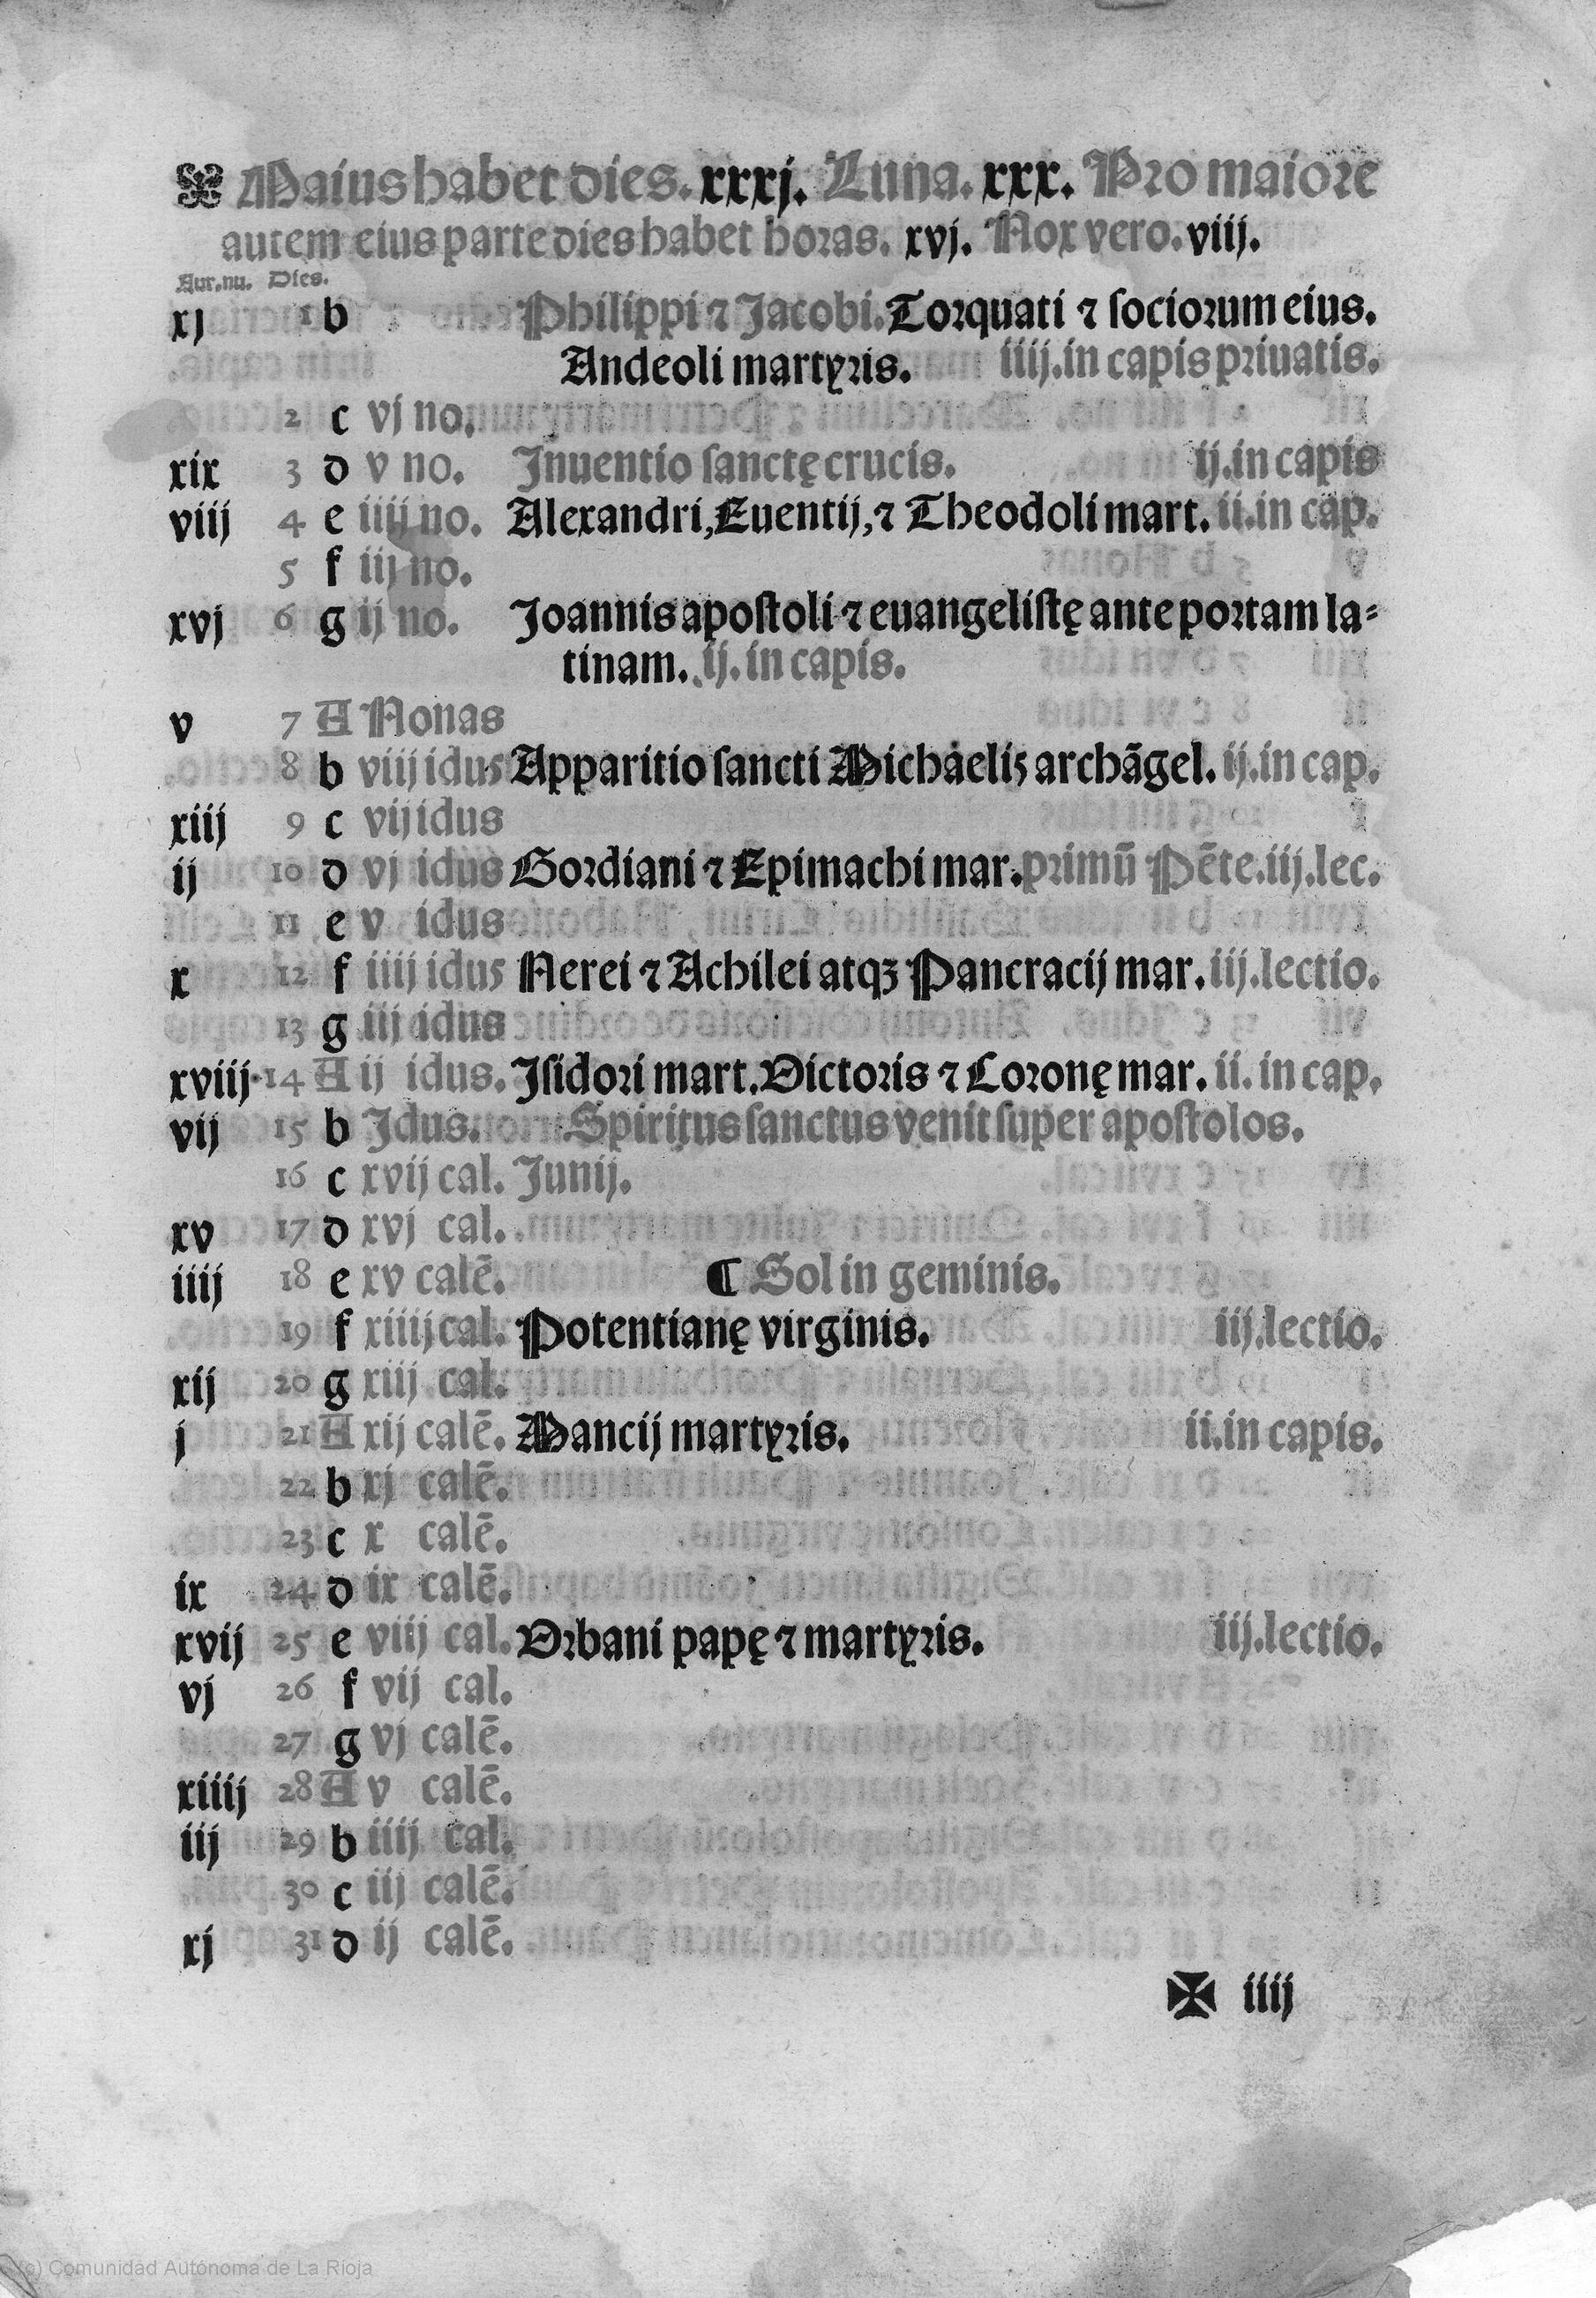 ✠ Maius habet dies. xxxj. Luna. xxx. Pro maiore
autem eius parte dies habet horas. xvj. Nox vero. viij.
Aur.nu. Dies.
xj 1 b Philippi ⁊ Jacobi. Torquati ⁊ sociorum eius.
Andeoli martyris. iiij. in capis priuatis.
2 c vj no.
xix 3 d v no. Inuentio sanctę crucis. ij. in capis
viij 4 e iiij no. Alexandri, Euentij, ⁊ Theodoli mart. ii. in cap.
5 f iij no.
xvj 6 g ij no. Joannis apostoli ⁊ euangelistę ante portam la⸗
tinam. ij. in capis.
v 7 A Nonas
8 b viij idus Apparitio sancti Michaelis archāgel. ij. in cap.
xiij 9 c vij idus
ij 10 d vj idus Gordiani ⁊ Epimachi mar. primū Pēte. iij. lec.
11 e v idus
x 12 f iiij idus Nerei ⁊ Achilei atqꝫ Pancracij mar. iij. lectio.
13 g iij idus
xviij 14 A ij idus. Isidori mart. Victoris ⁊ Coronę mar. ii. in cap.
vij 15 b Idus. Spiritus sanctus venit super apostolos.
16 c xvij cal. Junij.
xv 17 d xvj cal.
iiij 18 e xv calē. ¶ Sol in geminis.
19 f xiiij cal. Potentianę virginis. iij. lectio.
xij 20 g xiij cal.
j 21 A xij calē. Mancij martyris. ii. in capis.
22 b xj calē.
23 c x calē.
ix 24 d ix calē.
xvij 25 e viij cal. Vrbani papę ⁊ martyris. iij. lectio.
vj 26 f vij cal.
27 g vj calē.
xiiij 28 A v calē.
iij 29 b iiij cal.
30 c iij calē.
xj 31 d ij calē.
✠ iiij
(c) Comunidad Autónoma de La Rioja